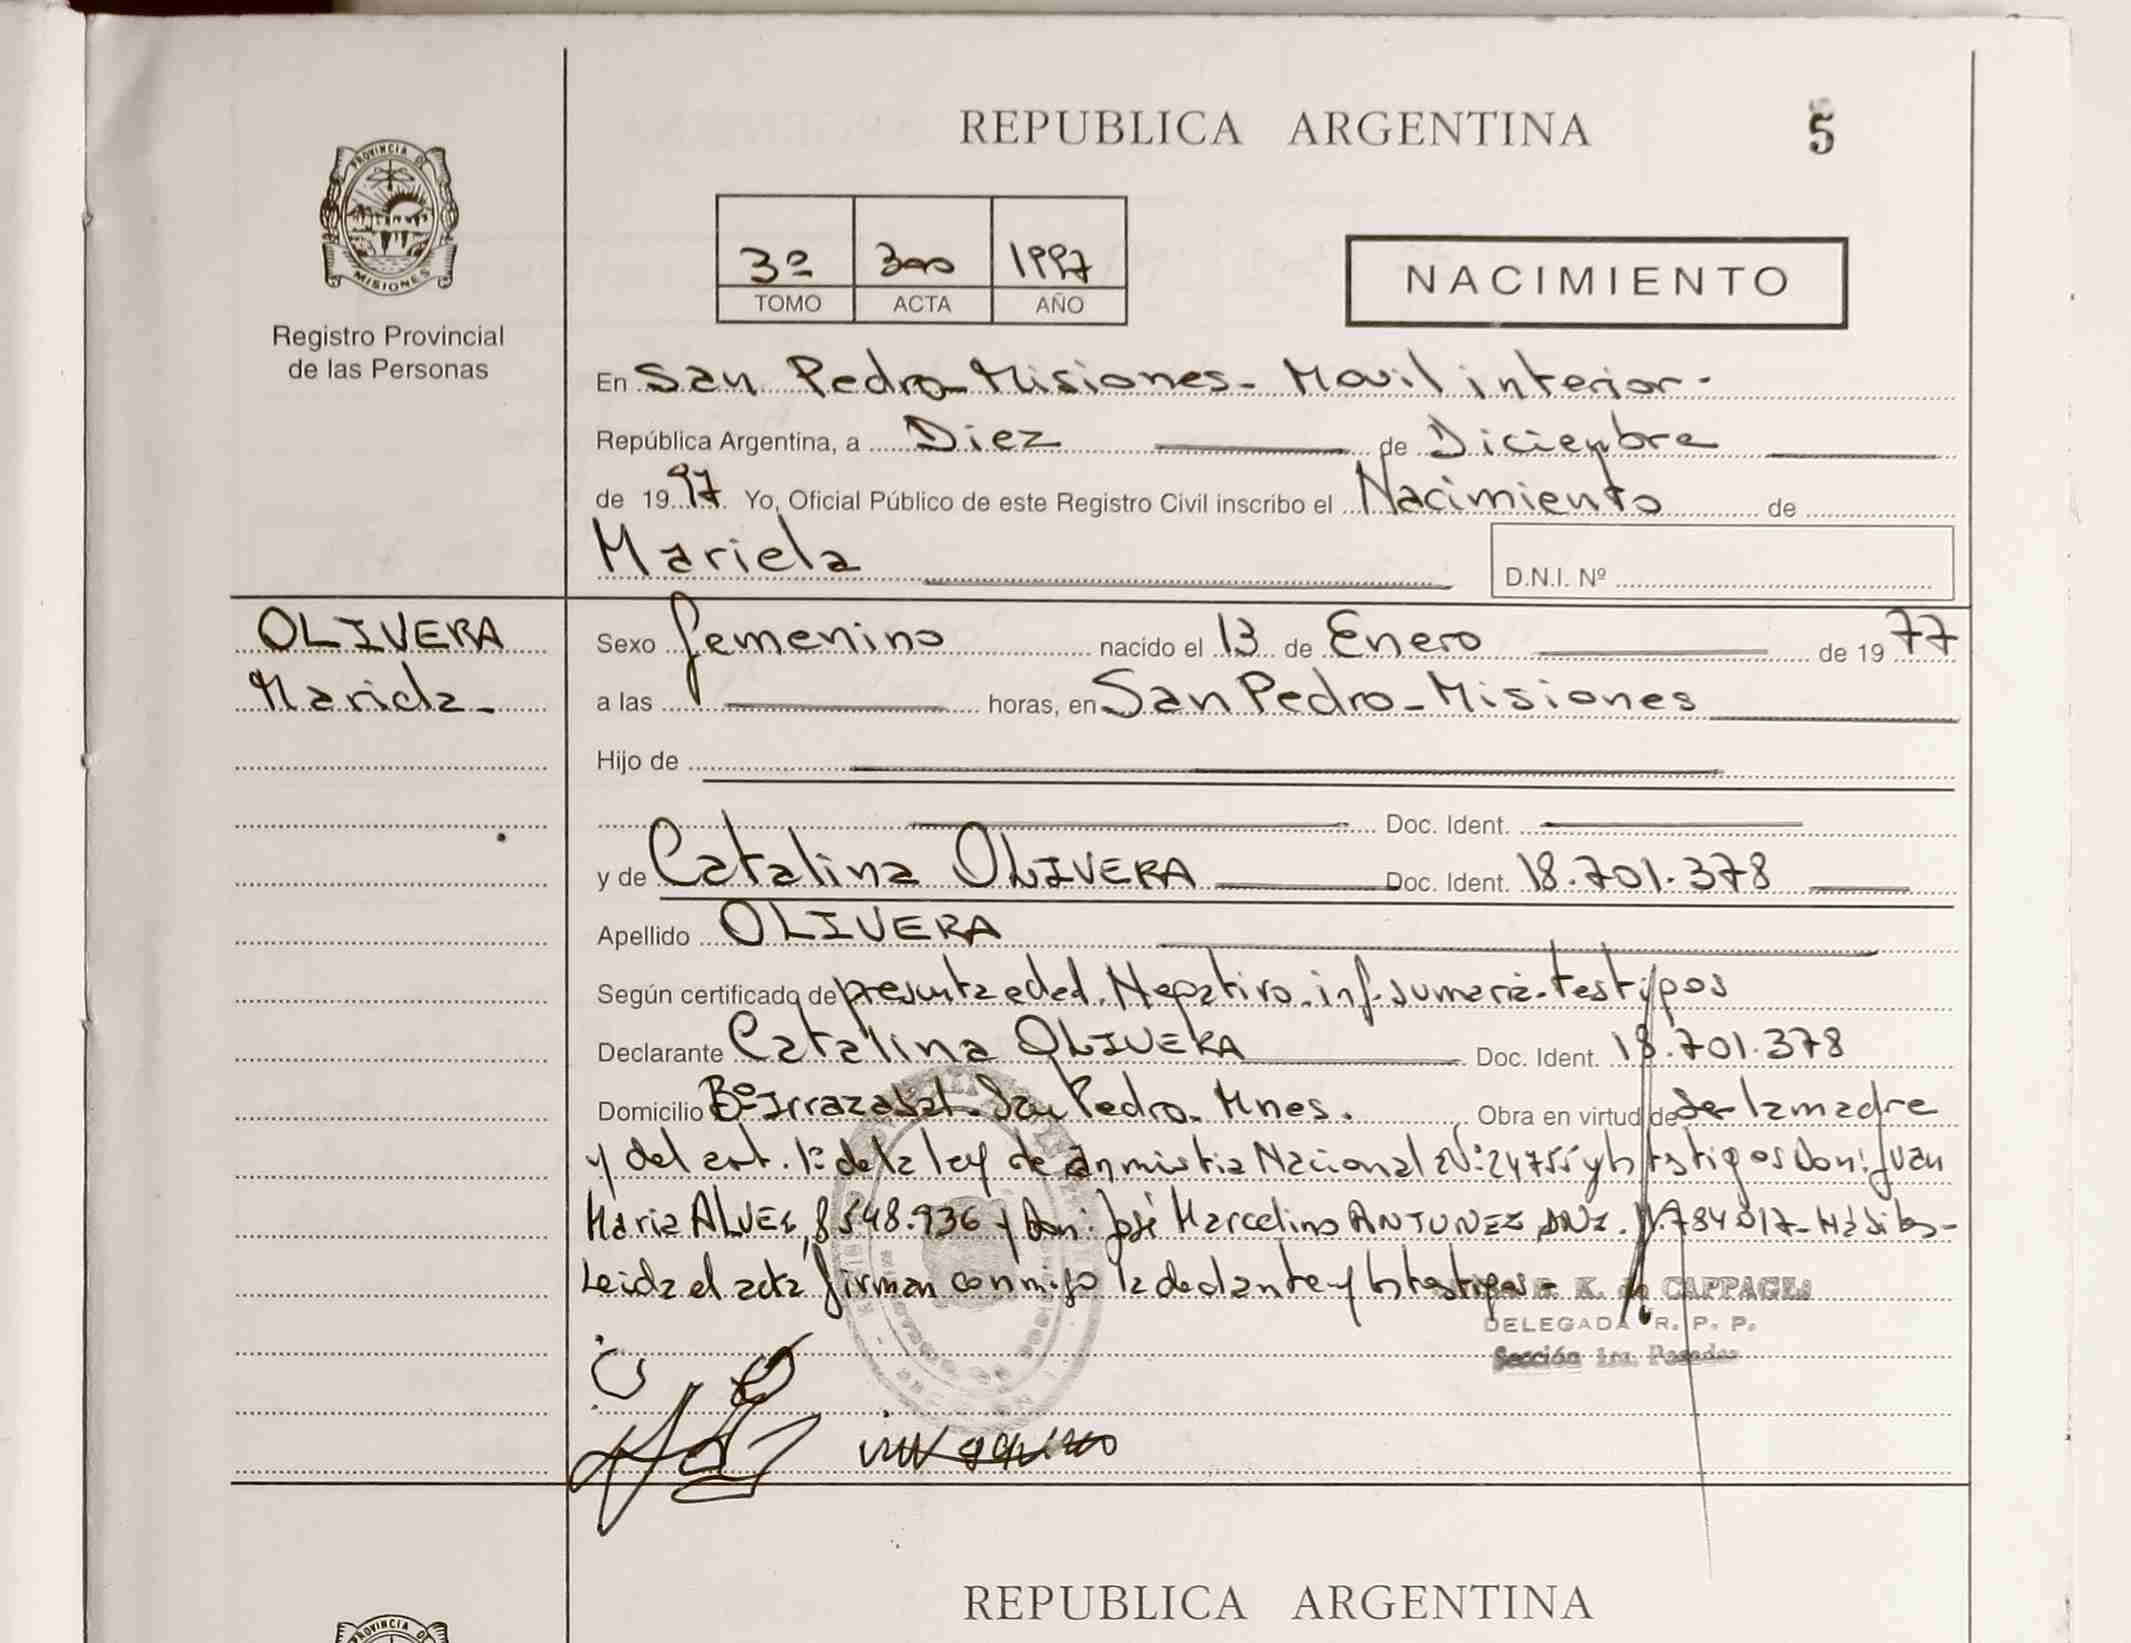 REPUBLICA ARGENTINA
5
PROVINCIA DE
MISIONES
Registro Provincial
de las Personas
3º 300 1997
TOMO ACTA AÑO
NACIMIENTO
En San Pedro - Misiones - Movil interior -
República Argentina, a Diez de Diciembre
de 1997 Yo, Oficial Público de este Registro Civil inscribo el Nacimiento de
Mariela
D.N.I. Nº
OLIVERA
Mariela -
Sexo femenino nacido el 13 de Enero de 1977
a las horas, en San Pedro - Misiones
Hijo de
Doc. Ident.
y de Catalina OLIVERA Doc. Ident. 18.701.378
Apellido OLIVERA
Según certificado de presunta edad. Negativo. inf. sumaria. testigos
Declarante Catalina OLIVERA Doc. Ident. 18.701.378
Domicilio Bº Irrazabal - San Pedro. Mnes. Obra en virtud de de la madre
y del art. 1º de la ley de anmistia Nacional Nº: 24755 y ts testigos Don: Juan
Maria ALVEZ, 8548.936 y Don: José Marcelino ANTUNEZ DNI. Hábiles -
Leida el acta firman conmigo la declante y ts testigos -
K. de CAPPAGLI
DELEGADA R. P. P.
Sección 1ra. Posadas
REPUBLICA ARGENTINA
PROVINCIA DE